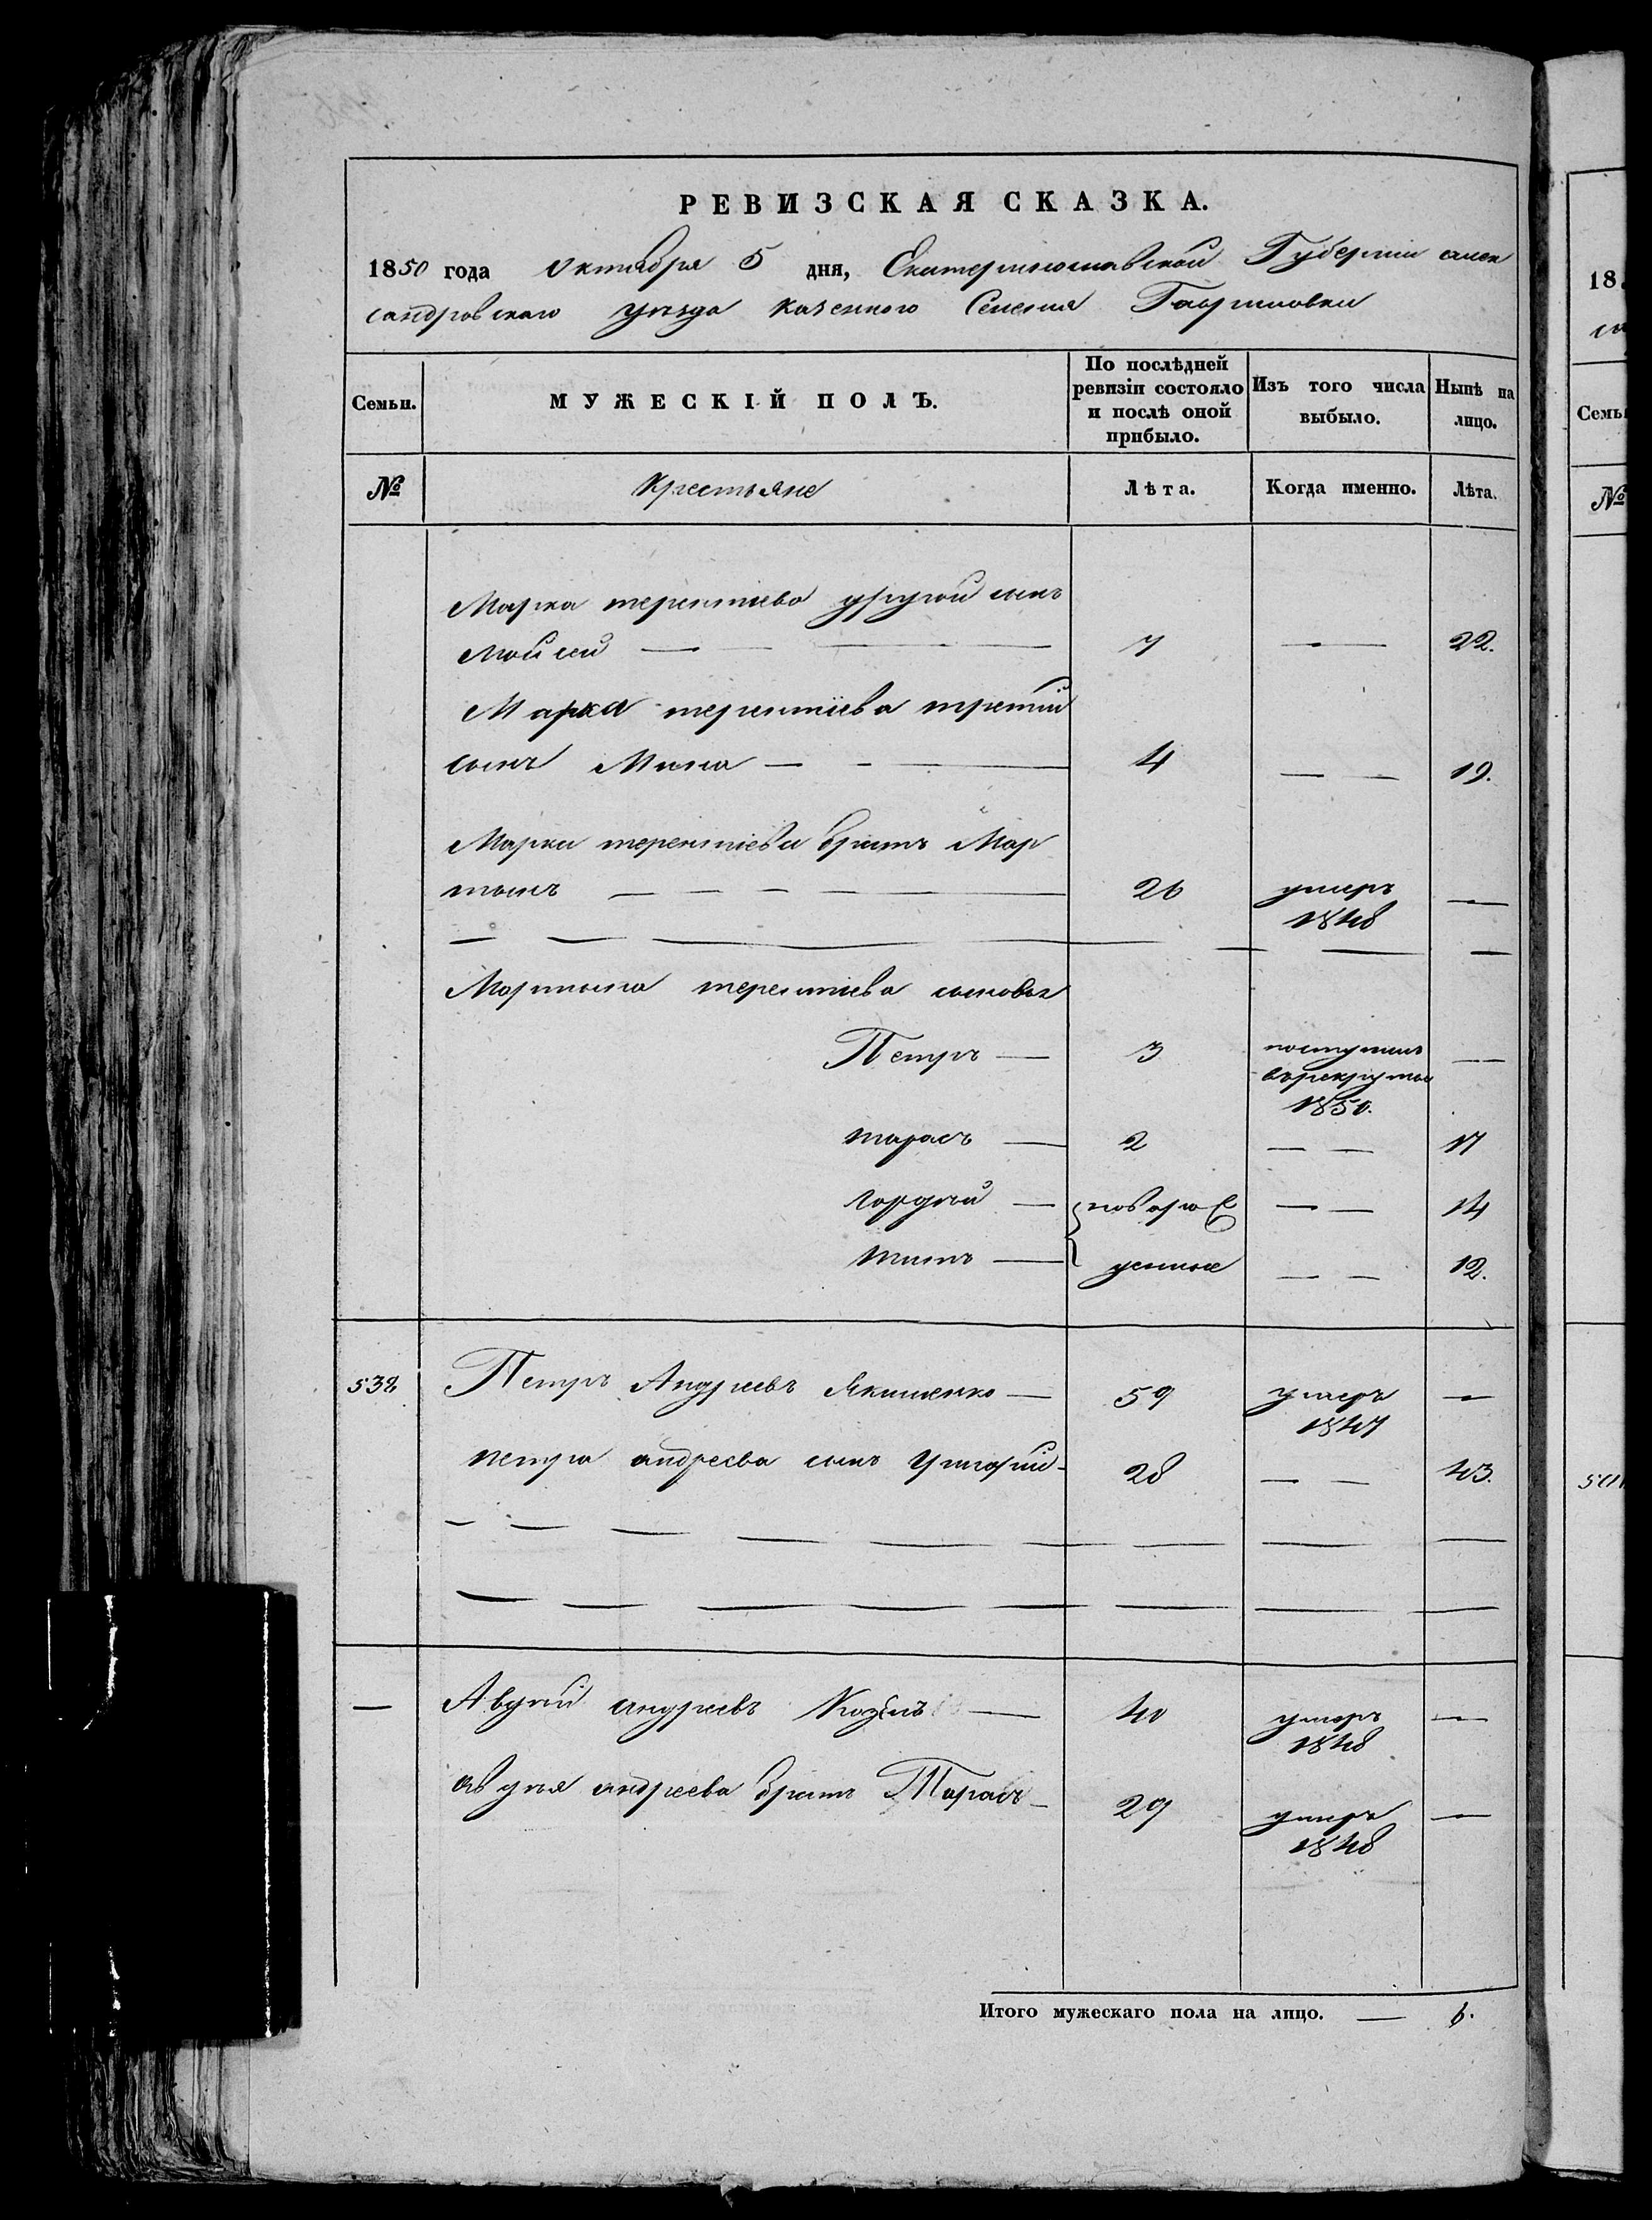 РЕВИЗСКАЯ СКАЗКА.
1850 года Октября 5 дня, Екатеринославской Губернии алек
сандровскаго уезда казенного Селения Гавриловки
Семьи.
МУЖЕСКІЙ ПОЛЪ.
По послѣдней ревизіи состояло и послѣ оной прибыло.
Изъ того числа выбыло.
Нынѣ на лицо.
№
Крестьяне
Лѣта.
Когда именно.
Лѣта.
Марка терентіева другой сынъ
Мойсей 7 22.
Марка терентіева третій
сынъ Мина 4 19.
Марка терентіева братъ Мар
тынъ 26 умеръ 1848
Мартына терентіева сыновья
Петръ 3 поступилъ
въ рекруты
1850.
тарасъ 2 17
гордей новорож 14
титъ денные 12.
538 Петръ Андреевъ Якименко 59 умеръ
1847
петра андреева сынъ Григорій 28 43.
Авдей андреевъ Козелъ 40 умеръ
1848
авдея андреева братъ Тарасъ 29 умеръ
1848
Итого мужескаго пола на лицо. 6.
18
Семьи
№